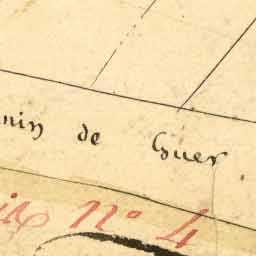 min de Guer.
N° 4